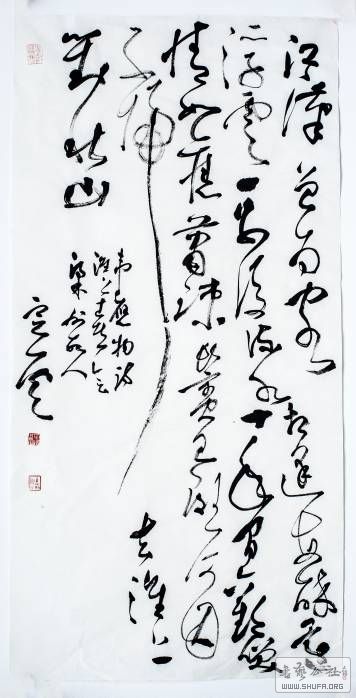 江漢曾为客相逢每醉還
浮雲一别後流水十年间歡笑
情如舊蕭疎鬢已斑何因
不歸去淮上
對秋山
韋應物詩
淮上喜會
梁川故人
WWW.SHUFA.ORG